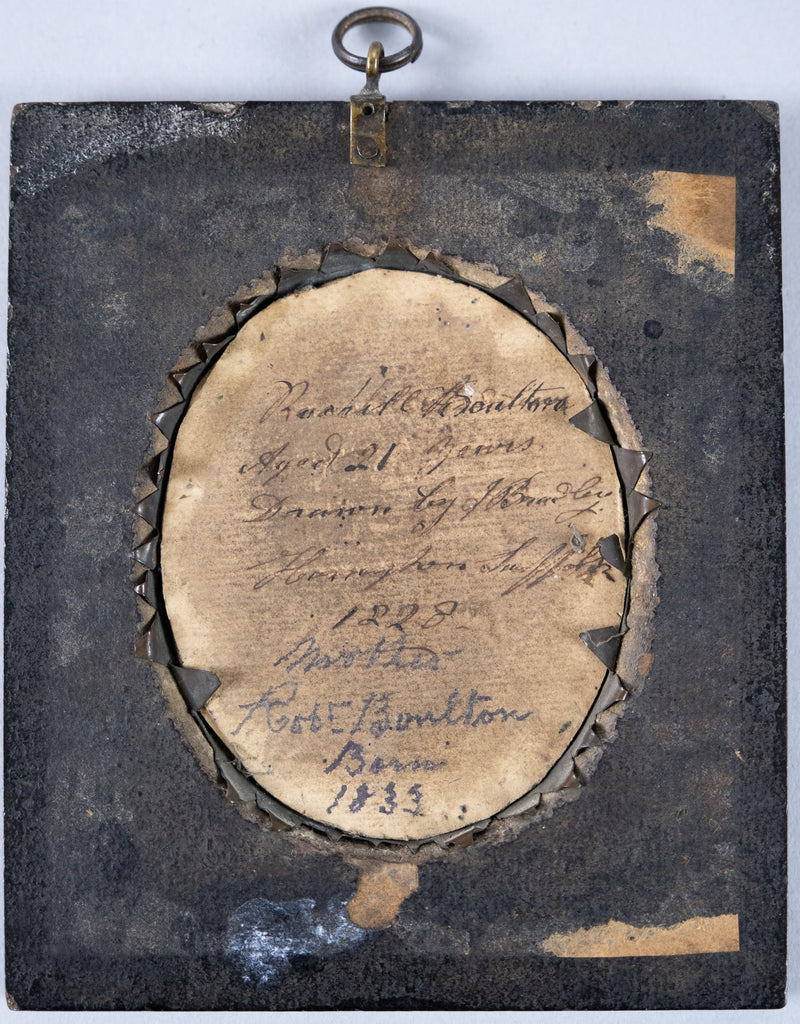 Rachell Boulton
Aged 21 Years
Drawn by J Bradley
Suffolk
1828
Mother
Robt Boulton
Born
1833